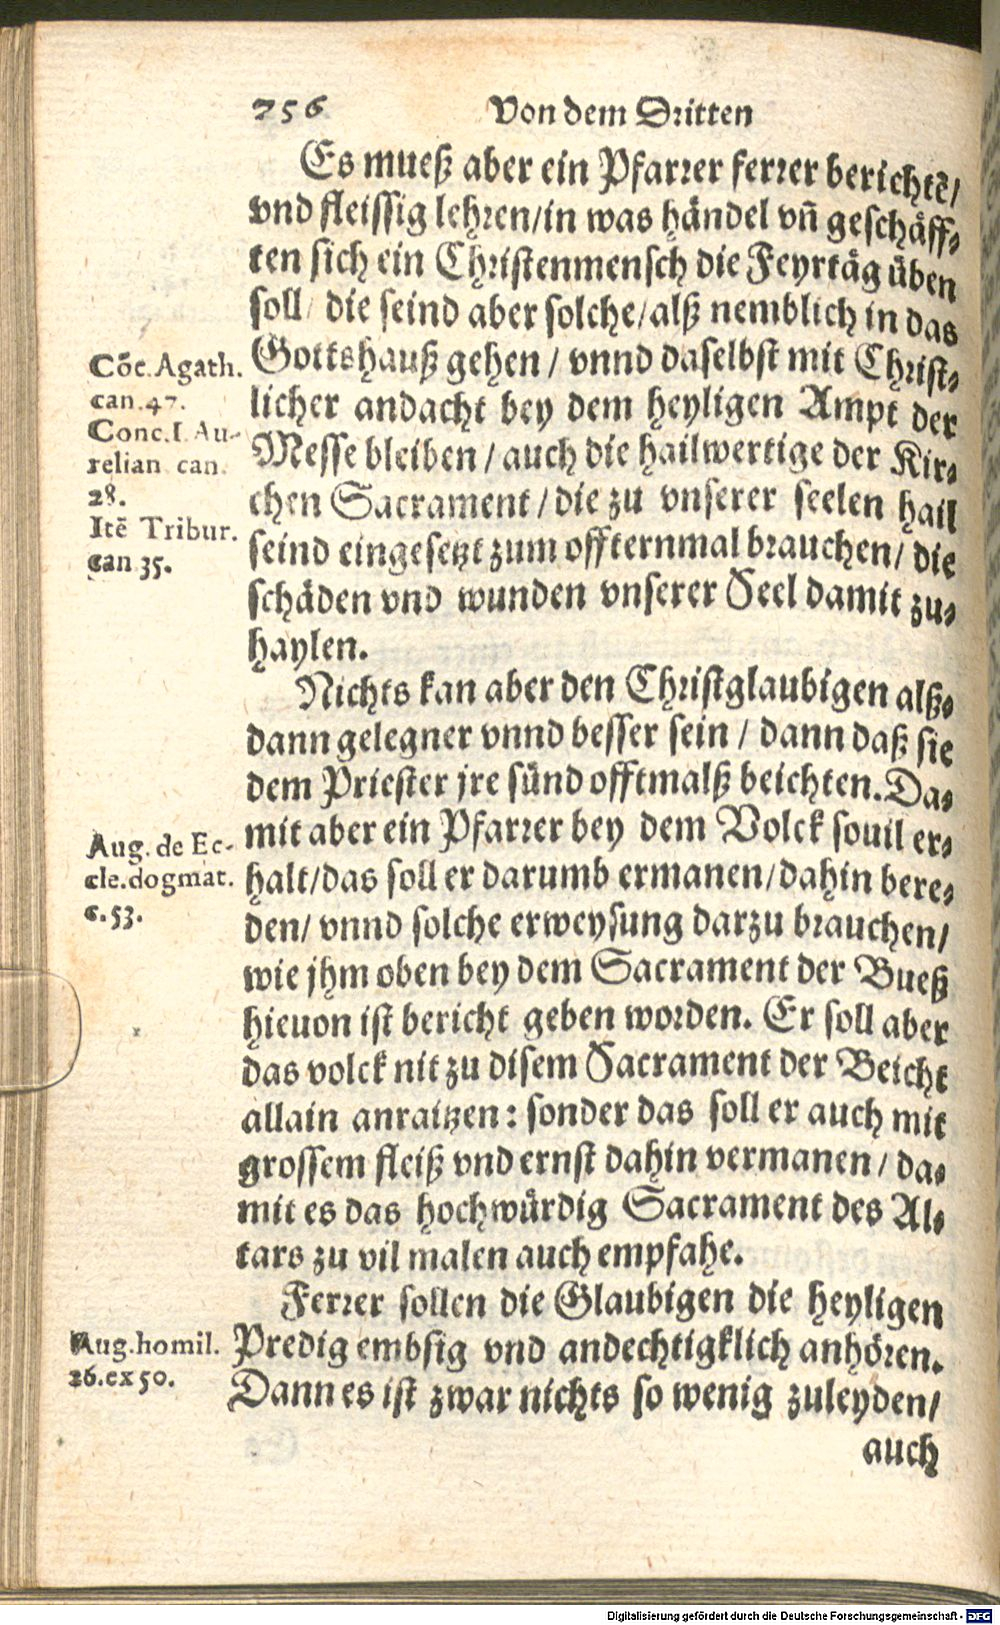 756 Von dem Dritten
Es mueß aber ein Pfarrer ferrer berichtē/
vnd fleissig lehren/in was händel vñ geschäff-
ten sich ein Christenmensch die Feyrtäg üben
soll/ die seind aber solche/alß nemblich in das
Gottshauß gehen/ vnnd daselbst mit Christ-
licher andacht bey dem heyligen Ampt der
Messe bleiben/auch die hailwertige der Kir-
chen Sacrament/die zu vnserer seelen hail
seind eingesetzt zum offternmal brauchen/ die
schäden vnd wunden vnserer Seel damit zu-
haylen.
Cōc. Agath.
can.47.
Conc.I.Au-
relian can.
28.
Itē Tribur.
can 35.
Nichts kan aber den Christglaubigen alß-
dann gelegner vnnd besser sein/ dann daß sie
dem Priester jre sünd offtmalß beichten. Da-
mit aber ein Pfarrer bey dem Volck souil er-
halt/das soll er darumb ermanen/dahin bere-
den/ vnnd solche erweysung darzu brauchen/
wie jhm oben bey dem Sacrament der Bueß
hieuon ist bericht geben worden. Er soll aber
das volck nit zu disem Sacrament der Beicht
allain anraitzen: sonder das soll er auch mit
grossem fleiß vnd ernst dahin vermanen/ da-
mit es das hochwürdig Sacrament des Al-
tars zu vil malen auch empfahe.
Aug. de Ec-
cle.dogmat.
c.53.
Ferrer sollen die Glaubigen die heyligen
Predig embsig vnd andechtigklich anhören.
Dann es ist zwar nichts so wenig zuleyden/
Aug.homil.
26.ex 50.
auch
Digitalisierung gefördert durch die Deutsche Forschungsgemeinschaft - DFG